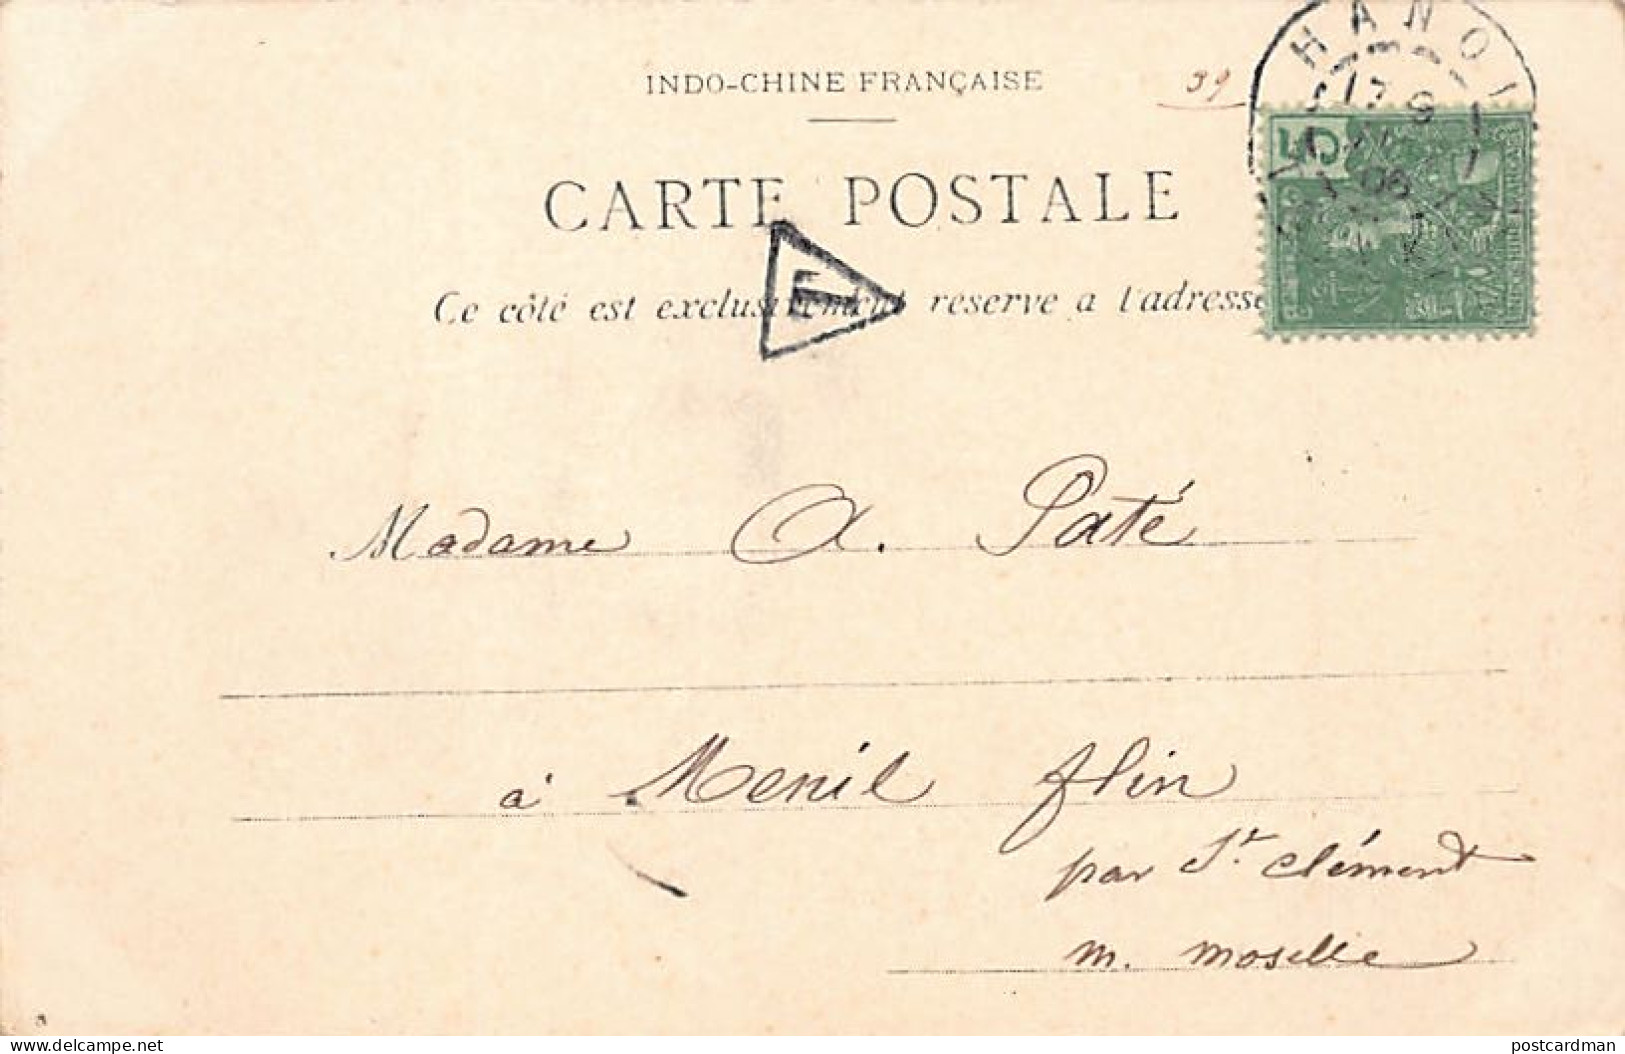 HANOI
INDO-CHINE FRANÇAISE
39
CARTE POSTALE
5
T
Ce côté est exclusivement réservé à l'adresse
Madame A. Paté
à Menil flin
par St. Clément
m. moselle
www.delcampe.net
postcardman